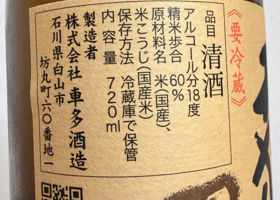 《要冷蔵》
品目 清酒
アルコール分18度
精米歩合 60%
原材料名 米(国産)、
米こうじ(国産米)
保存方法 冷蔵庫で保管
内容量 720ml
製造者
株式会社 車多酒造
石川県白山市
坊丸町六〇番地一